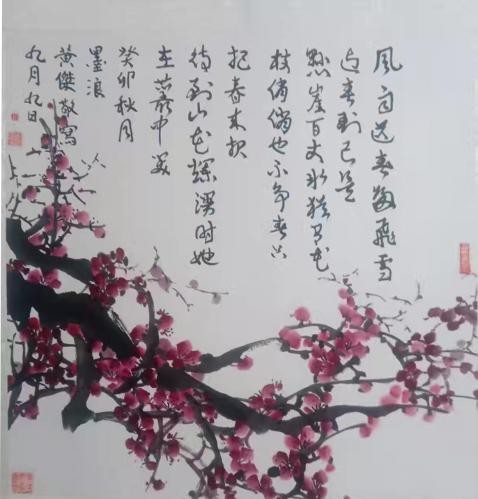 风雨送春歸飛雪
迎春到已是
悬崖百丈冰犹有花
枝俏俏也不争春只
把春来报
待到山花爛漫时她
在叢中笑
癸卯秋月
墨浪
黄傑敬寫
九月九日